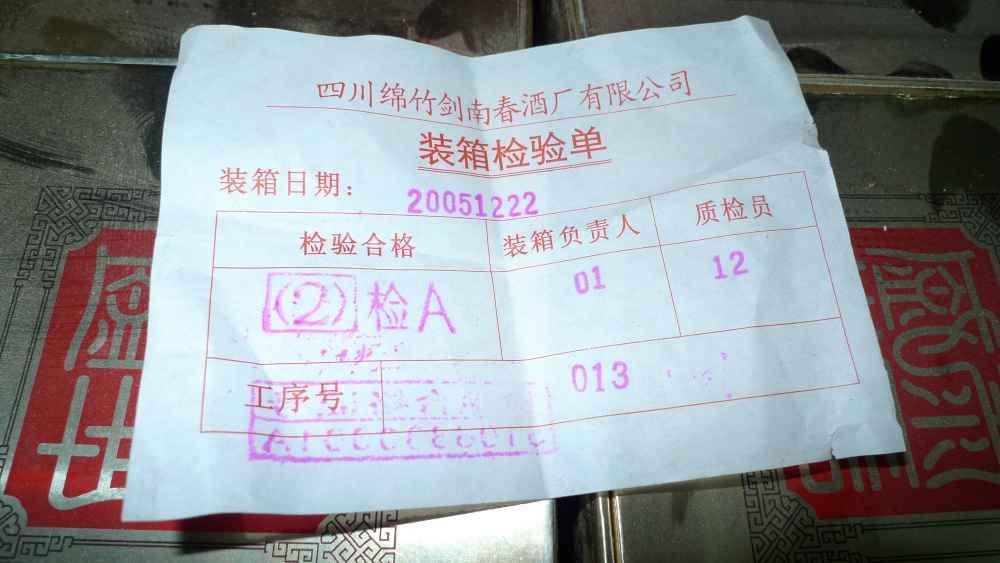 四川绵竹剑南春酒厂有限公司
装箱检验单
装箱日期： 20051222
检验合格 装箱负责人 质检员
(2) 检A 01 12
工序号 013